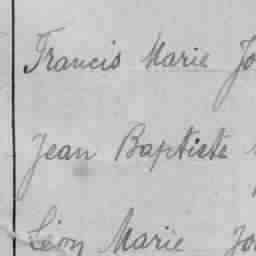 Francis Marie Jo
Jean Baptiste
Léon Marie Jo